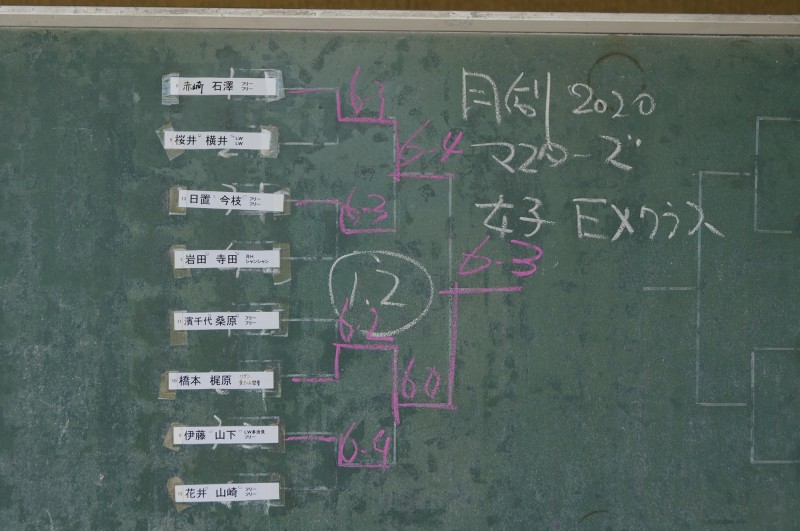 赤崎 石澤 フリー フリー
6-1
桜井 横井 LW LW
6-4
日置 今枝 フリー フリー
6-3
岩田 寺田 シャンシャン
6-3
1.2
濱千代 桑原 フリー フリー
6-2
橋本 梶原
6-0
伊藤 山下 フリー
6-4
花井 山崎 フリー フリー
2020
マスターズ
女子 EXクラス